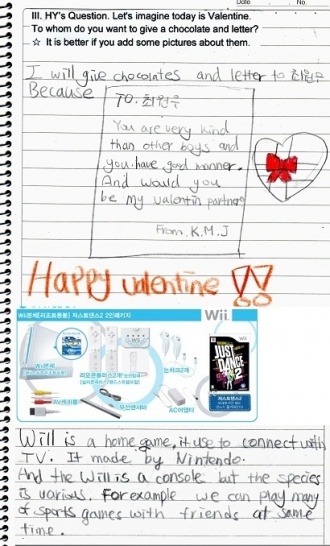 Date No.
III. HY's Question. Let's imagine today is Valentine.
To whom do you want to give a chocolate and letter?
☆ It is better if you add some pictures about them.
I will give chocolates and letter to 최원우
Because
TO. 최원우
You are very kind
than other boys and
you have good manner.
And would you
be my valentin partner
From. K.M.J
Happy valentine !!
Wii본체(리모트동봉) 저스트댄스2 2인패키지
Wii
Wii본체
리모콘플러스2개
눈차크2개
JUST DANCE 2
AV케이블
모션센서바
AC어댑터
저스트댄스2
Will is a home game, it use to connect with
TV. It made by Nintendo.
And the Will is a console but the species
is various. For example we can play many
of sports games with friends at same
time.